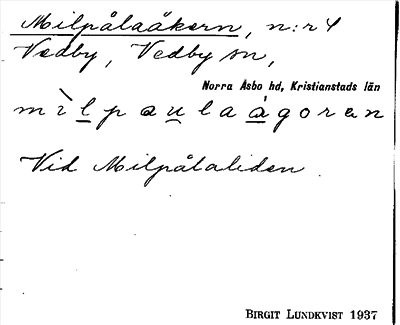 Milpålaåkern, n:r 4
Vedby, Vedby sn,
Norra Åsbo hd, Kristianstads län
mìlpaulaågoren
Vid Milpålaliden.
BIRGIT LUNDKVIST 1937